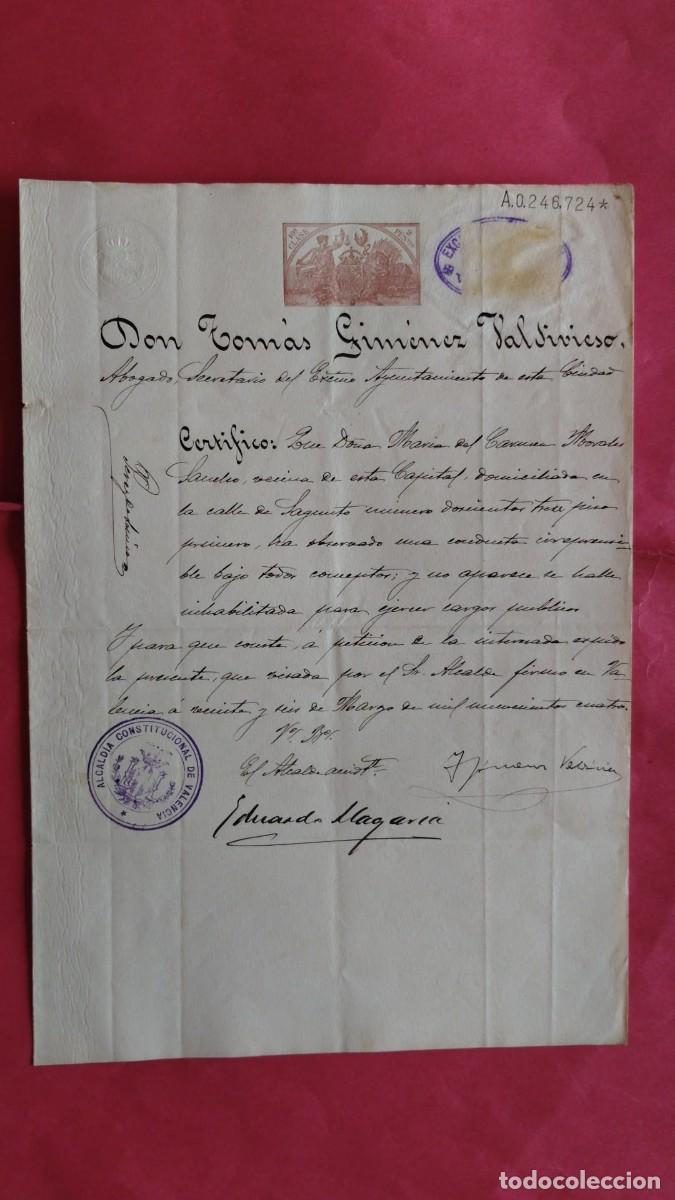 A.0.246,724*
10ª CLASE 2 PESETAS
EXC
Don Tomás Giménez Valdivieso,
Abogado, Secretario del Excmo Ayuntamiento de esta Ciudad
Certifico: Que Doña Maria del Carmen Morales
Sancho, vecina de esta Capital, domiciliada en
la calle de Sagunto numero doscientos trece piso
primero, ha observado una conducta irreprensi-
ble bajo todos conceptos; y no aparece se halle
inhabilitada para ejercer cargos publicos
Y para que conste, á peticion de la interesada expido
la presente, que visada por el Sr. Alcalde firmo en Va-
lencia á veinte y seis de Marzo de mil novecientos cuatro.
Vº. Bº.
El Alcalde
ALCALDIA CONSTITUCIONAL DE VALENCIA
Eduardo
todocoleccion